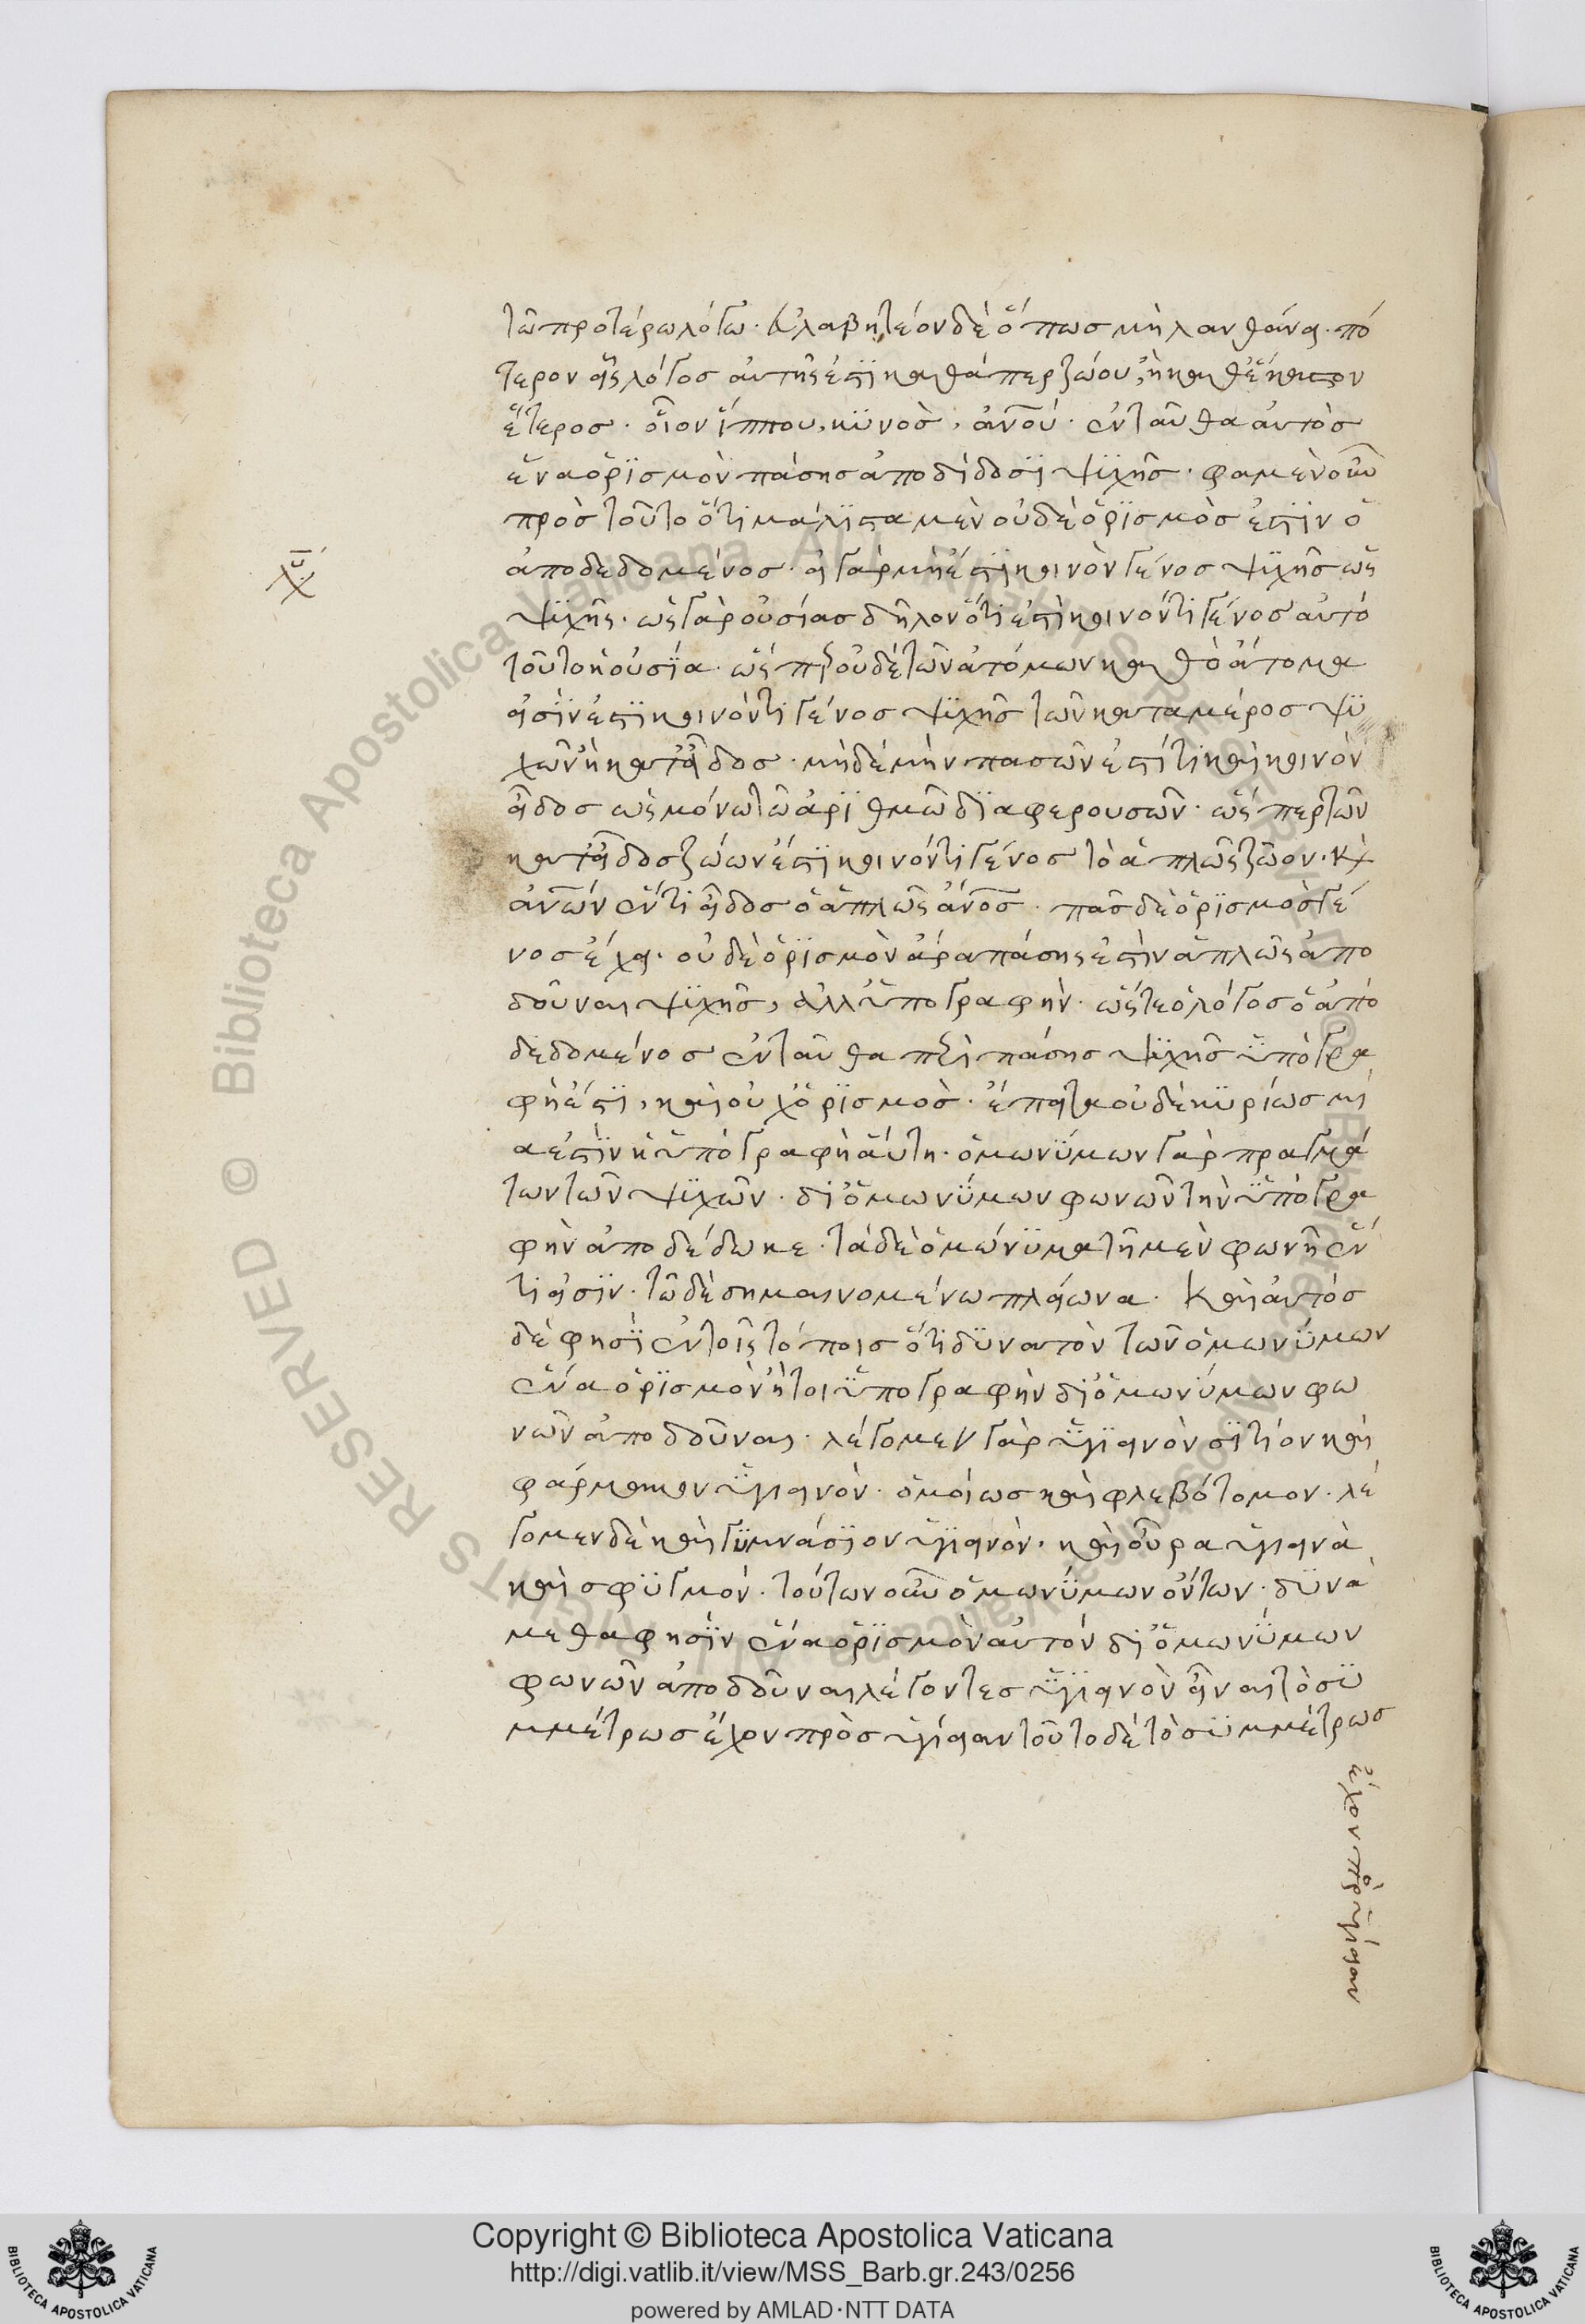 τῶ προτέρω λόγω. εὐλαβητέον δὲ ὅπως μὴ λανθάνει. πό
τερον εἷς λόγος αὐτῆς ἐστὶ καθάπερ ζώου, ἢ καθ' ἕκαστον
ἕτερος. οἷον ἵππου, κυνὸς, ἀνου. ἐνταῦθα αὐτὸς
ἕνα ὁρισμὸν πάσης ἀποδίδοσι ψυχῆς. φαμὲν οὖν
πρὸς τοῦτο ὅτι μάλιστα μὲν οὐδὲ ὁρισμὸς ἐστὶν ὁ
ἀποδεδομένος. εἰ γὰρ μὴ ἐστὶ κοινὸν γένος ψυχῆς ὡς
ψυχῆς. ὡς γὰρ οὐσίας δῆλον ὅτι ἐστὶ κοινόν τι γένος αὐτὸ
τοῦτο ἡ οὐσία. ὥσπερ οὐδὲ τῶν ἀτόμων καθὸ ἄτομα
εἰσὶν ἐστὶ κοινόν τι γένος ψυχῆς τῶν κατα μέρος ψυ
χῶν ἢ κατ' εἶδος. μὴ δὲ μὴν πασῶν ἐστί τι καὶ κοινὸν
εἶδος ὡς μόνω τῶ ἀριθμῶ διαφερουσῶν. ὥσπερ τῶν
κατ' εἶδος ζώων ἐστὶ κοινόν τι γένος τὸ ἁπλῶς ζῶον. κ
ἀνων ἕν τι εἶδος ὁ ἁπλῶς ἄνος. πᾶς δὲ ὁρισμὸς γέ
νος ἔχει. οὐδὲ ὁρισμὸν ἄρα πάσης ἐστὶν ἁπλῶς ἀπο
δοῦναι ψυχῆς, ἀλλ' ὑπογραφήν. ὥστε ὁ λόγος ὁ ἀπο
δεδομένος ἐνταῦθα περὶ πάσης ψυχῆς ὑπογρα
φή ἐστι, καὶ οὐχ ὁρισμὸς. ἔπειτα οὐδὲ κυρίως μί
α ἐστὶν ἡ ὑπογραφὴ αὕτη. ὁμωνύμων γὰρ πραγμά
των τῶν ψυχῶν. δι' ὁμωνύμων φωνῶν τὴν ὑπογρα
φὴν ἀποδέδωκε. τὰ δὲ ὁμώνυμα τῆ μὲν φωνῆ ἕν
τι εἰσίν. τῶ δὲ σημαινομένω πλείωνα. καὶ αὐτὸς
δὲ φησὶ ἐν τοῖς τόποις ὅτι δυνατὸν τῶν ὁμωνύμων
ἕνα ὁρισμὸν ἤτοι ὑπογραφὴν δι' ὁμωνύμων φω
νῶν ἀποδοῦναι. λέγομεν γὰρ ὑγιεινὸν σιτίον καὶ
φάρμακον ὑγιεινὸν. ὁμοίως καὶ φλεβότομον. λέ
γομεν δὲ καὶ γυμνάσιον ὑγιεινὸν. καὶ οὖρα ὑγιεινὰ
καὶ σφυγμόν. τούτων οὖν ὁμωνύμων ὄντων. δυνά
μεθα φησὶν ἕνα ὁρισμὸν αὐτὸν δι' ὁμωνύμων
φωνῶν ἀποδοῦναι λέγοντες ὑγιεινὸν εἶναι τὸ συ
μμέτρως ἔχον πρὸς ὑγίειαν τοῦτο δὲ τὸ συμμέτρως
ἔχον πρὸς ὑγίειαν
Copyright © Biblioteca Apostolica Vaticana
http://digi.vatlib.it/view/MSS_Barb.gr.243/0256
powered by AMLAD·NTT DATA